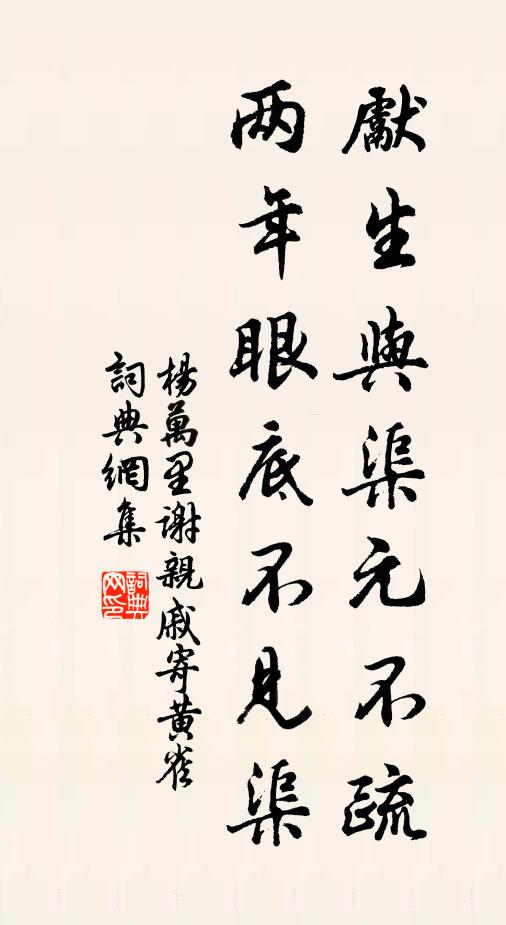 獻生與渠元不疏
两年眼底不見渠
楊萬里謝親戚寄黃雀
詞典網集
詞典网印